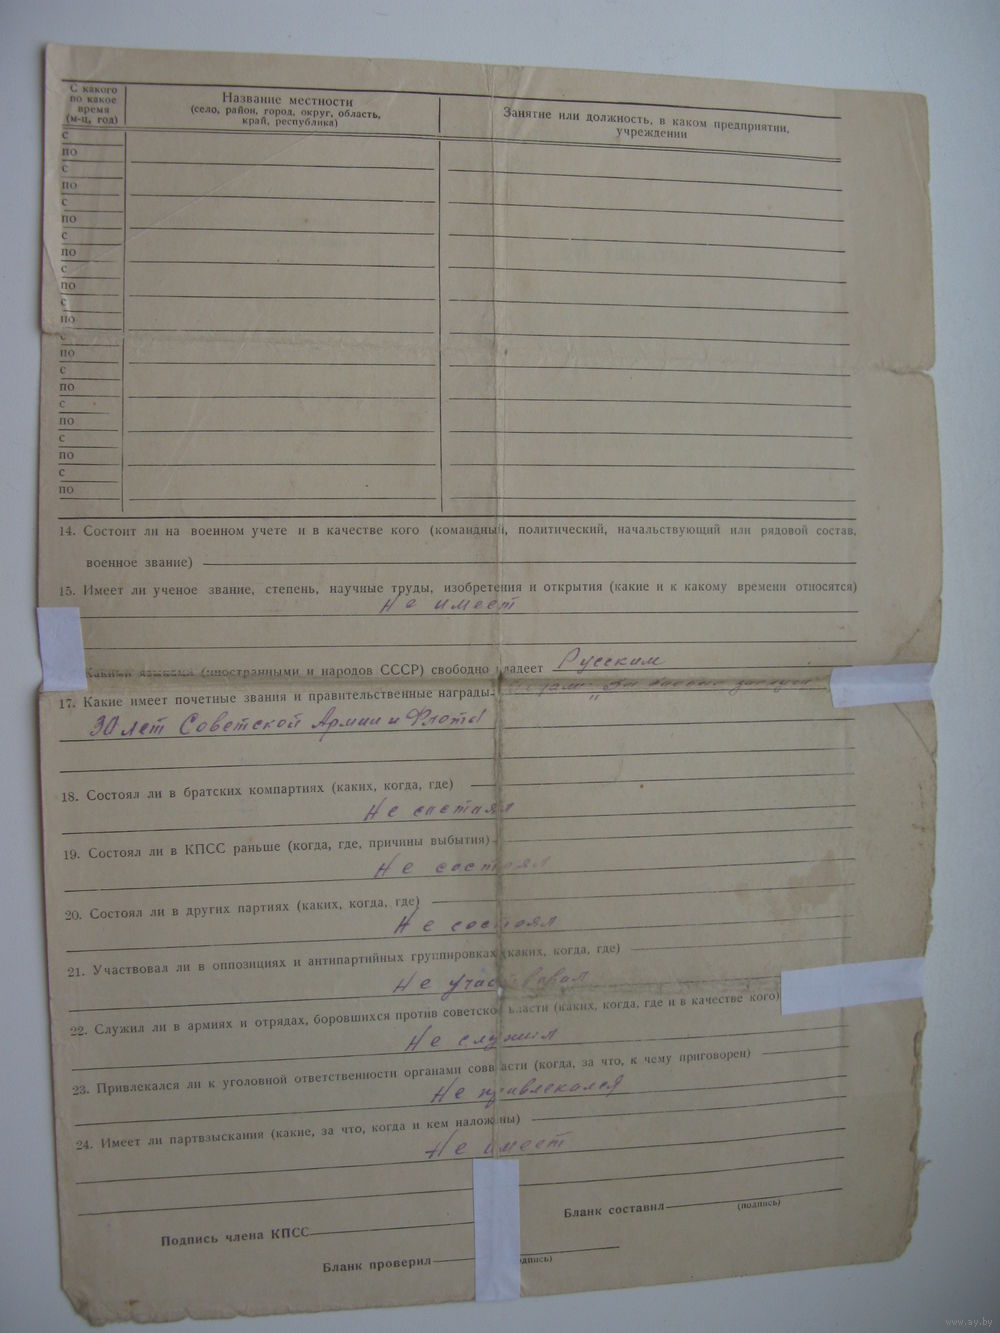 С какого
по какое
время
(м-ц, год)
Название местности
(село, район, город, округ, область,
край, республика)
Занятие или должность, в каком предприятии,
учреждении
с
по
с
по
с
по
с
по
с
по
с
по
с
по
с
по
с
по
с
по
с
по
14. Состоит ли на военном учете и в качестве кого (командный, политический, начальствующий или рядовой состав,
военное звание)
15. Имеет ли ученое звание, степень, научные труды, изобретения и открытия (какие и к какому времени относятся)
Не имеет
Какими языками (иностранными и народов СССР) свободно владеет Русским
17. Какие имеет почетные звания и правительственные награды- "За боевые заслуги
30 лет Советской Армии и Флота
18. Состоял ли в братских компартиях (каких, когда, где)
Не состоял
19. Состоял ли в КПСС раньше (когда, где, причины выбытия)
Не состоял
20. Состоял ли в других партиях (каких, когда, где)
Не состоял
21. Участвовал ли в оппозициях и антипартийных группировках (каких, когда, где)
Не участвовал
22. Служил ли в армиях и отрядах, боровшихся против советской власти (каких, когда, где и в качестве кого)
Не служил
23. Привлекался ли к уголовной ответственности органами соввласти (когда, за что, к чему приговорен)
Не привлекался
24. Имеет ли партвзыскания (какие, за что, когда и кем наложены)
Не имеет
Подпись члена КПСС
Бланк составил
(подпись)
Бланк проверил
одпись)
www.ay.by